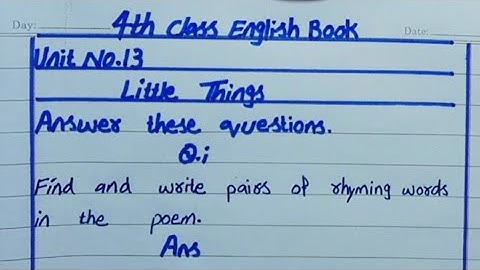 Day: 4th Class English Book Date:
Unit No.13
Little Things
Answer these questions.
Q.i
Find and write pairs of rhyming words
in the poem.
Ans